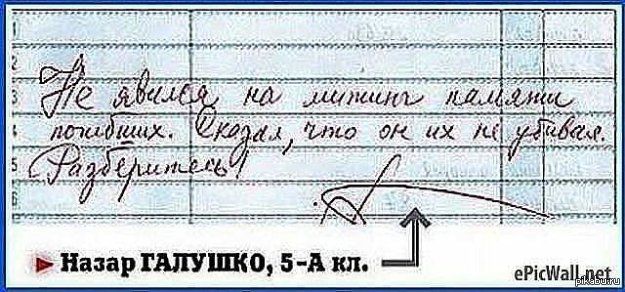 Не явился на митинг памяти
погибших. Сказал, что он их не убивал.
Разберитесь!
Назар ГАЛУШКО, 5-А кл.
ePicWall.net
pikabu.ru